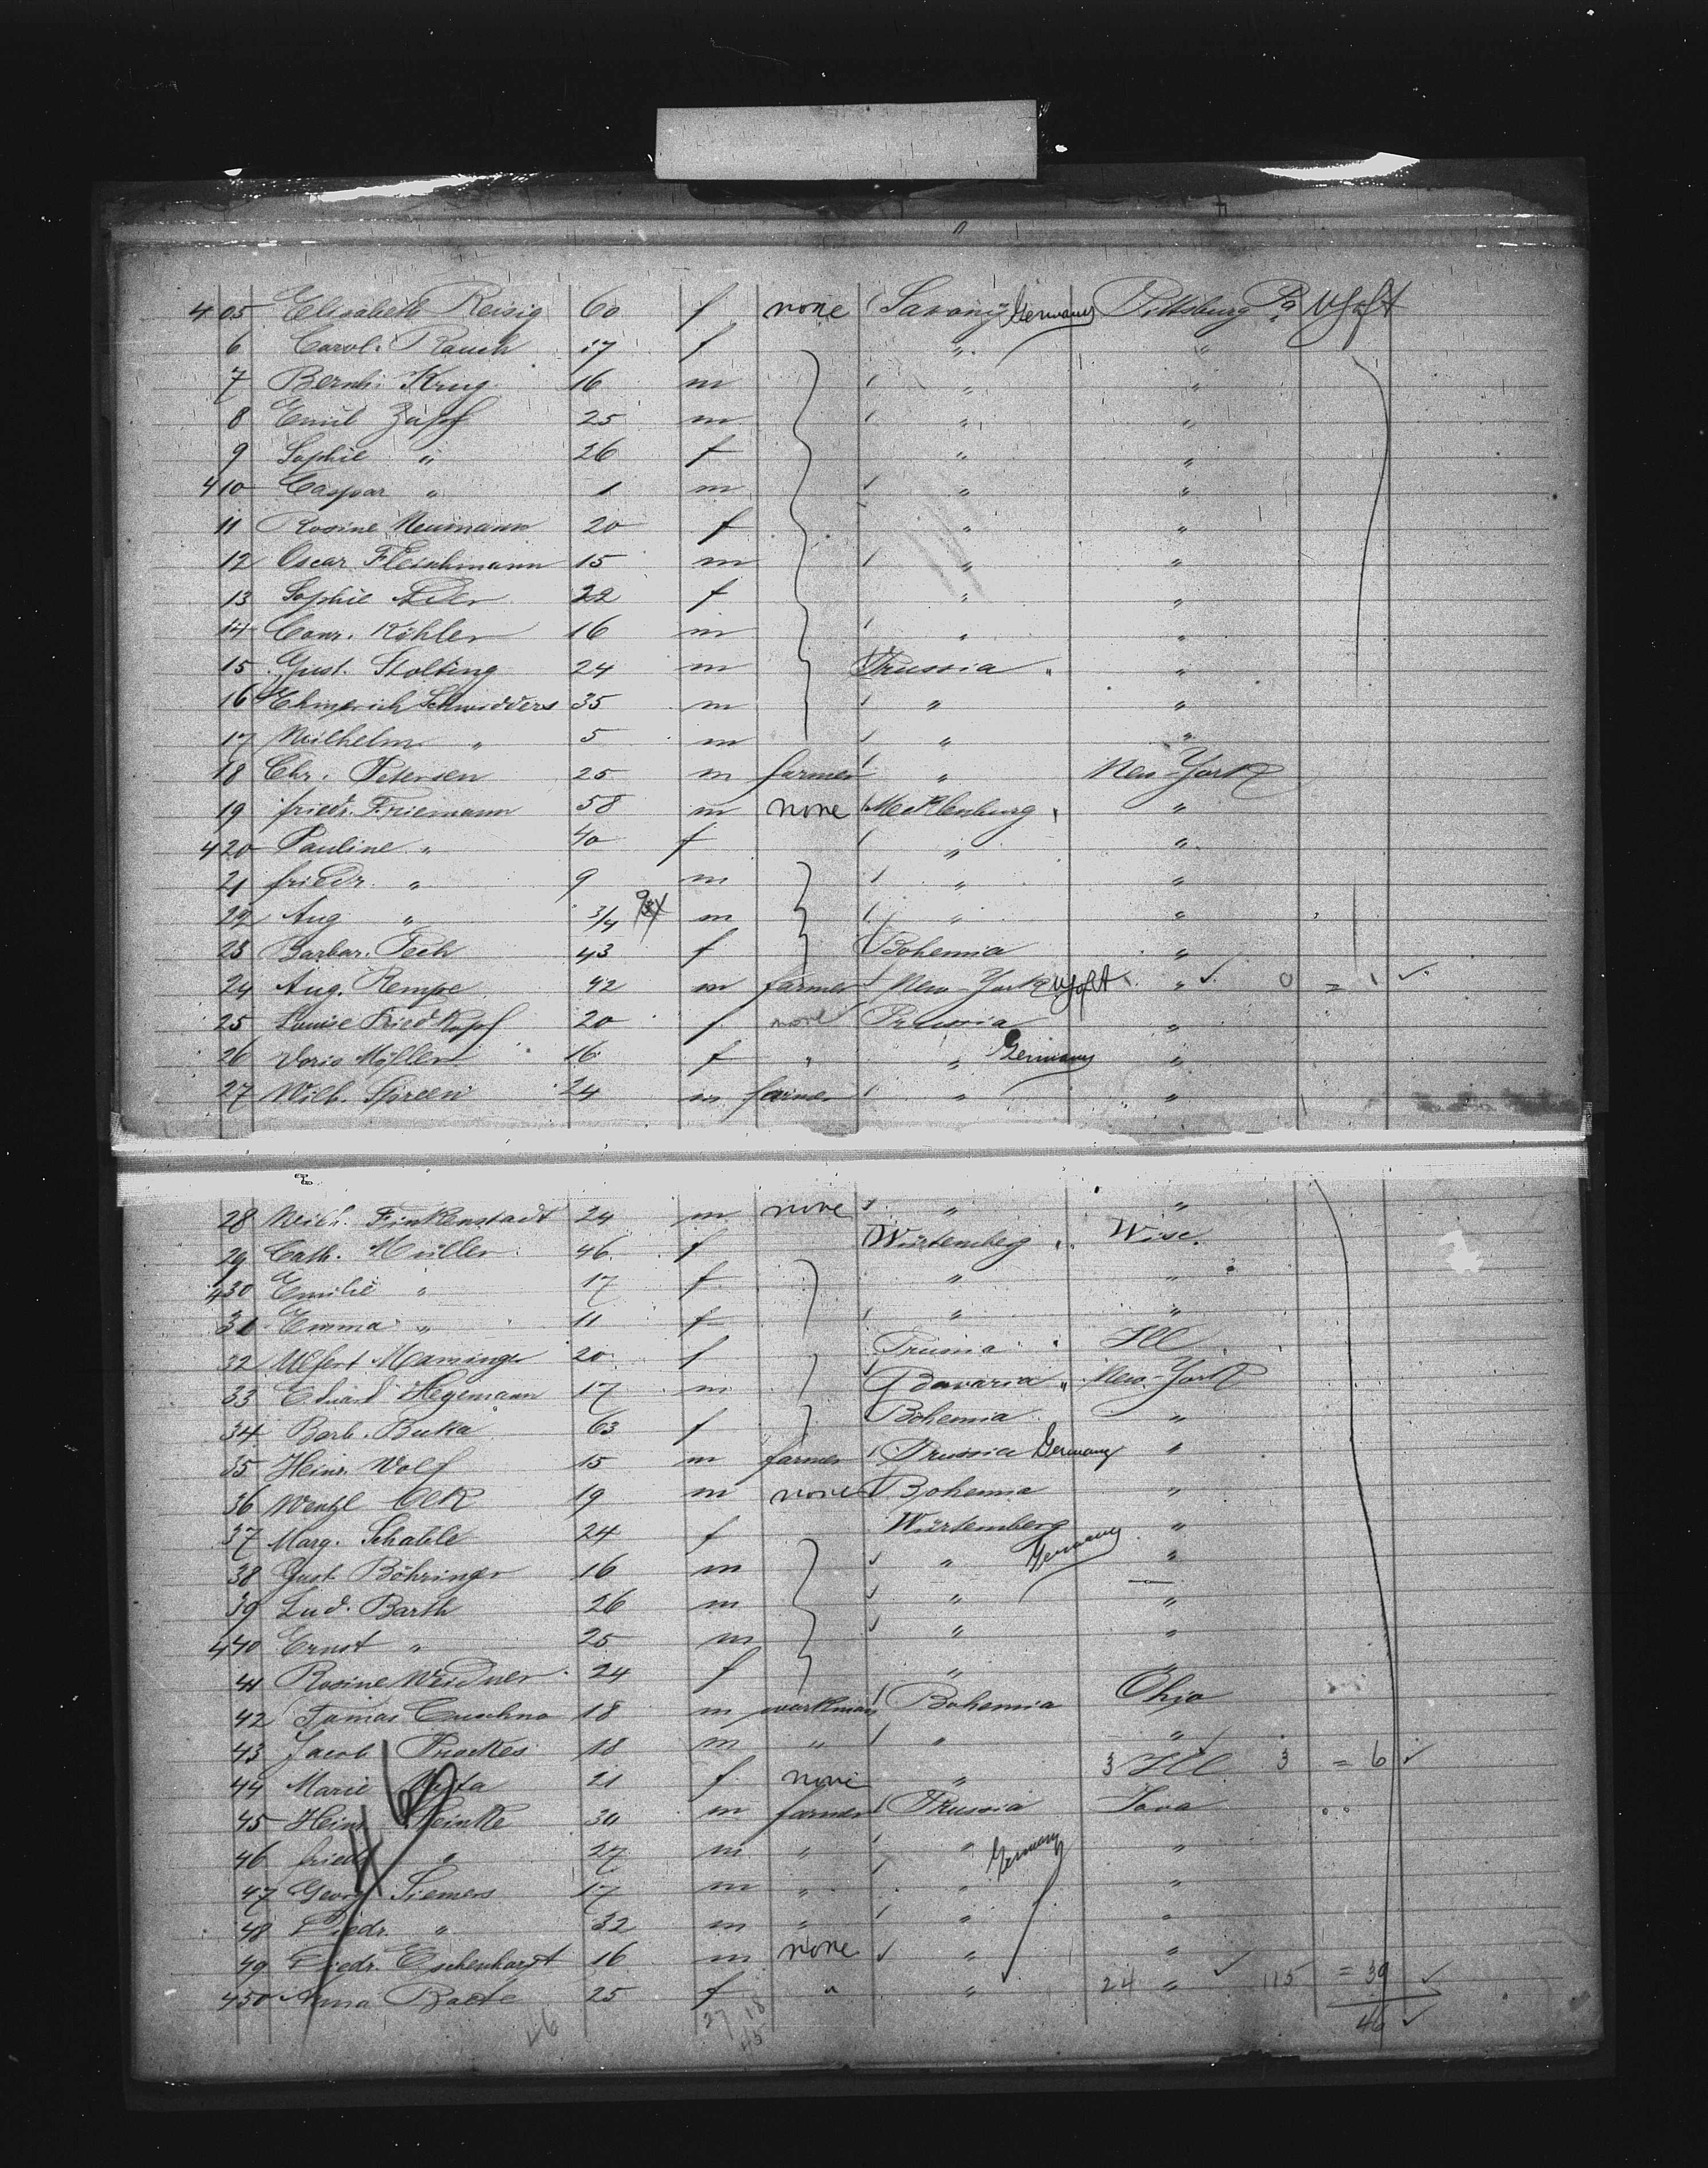 405 Elisabeth Reisig 60 f none Saxony Germany Pittsburg Pa U S of A
6 Carol. Rauch 17 f " "
7 Bernh. Krug 16 m " "
8 Emil Zapf 25 m " "
9 Sophie " 26 f " "
410 Caspar " 1 m " "
11 Rosine Neumann 20 f " "
12 Oscar Fleischmann 15 m " "
13 Sophie 22 f " "
14 Conr. Köhler 16 m " "
15 Gust. Stolting 24 m Prussia " "
16 35 m " "
17 Wilhelm " 5 m " "
18 Chr. Petersen 25 m farmer " New-York
19 friedr. Friemann 58 m none Mecklenburg " "
420 Pauline " 40 f " "
21 friedr. " 9 m " "
22 Aug " 3/4 m " "
23 Barbar. Pech 43 f Bohemia "
24 Aug. Rempe 42 m farmer New-York U S of A " 0 = 1
25 Louise Friedkopf 20 f none Prussia "
26 Doris Möller 16 f " " Germany "
27 Wilh. Spreen 24 m farmer " "
28 Wilh. Finkenstadt 24 m none " "
29 Cath. Müller 46 f Würtemberg " Wisc.
430 Emilie " 17 f " "
31 Emma " 11 f " "
32 20 f Prussia " Ill
33 Eduard Hegemann 17 m Bavaria " New-York
34 Barb. Buka 63 f Bohemia "
35 Heinr. Wolf 15 m farmer Prussia Germany "
36 Wenzl 19 m none Bohemia "
37 Marg. Schable 24 f Würtemberg "
38 Gust. Böhringer 16 m " Germany "
39 Lud. Barth 26 m " "
440 Ernst " 25 m " "
41 Rosine Weidner 24 f " "
42 18 m workman Bohemia Ohjo
43 Jacob 18 m " " "
44 Marie 21 f none " 3 Ill 3 = 6
45 Heinr. m farmer Prussia Iova
46 friedr. " 27 m " " Germany "
47 Georg Siemers 17 m " " "
48 Diedr. " 32 m " " "
49 Diedr. Eschenhardt 16 m none " "
450 Anna 25 f " " 24 " 115 = 39
46 27 18 45 46
46